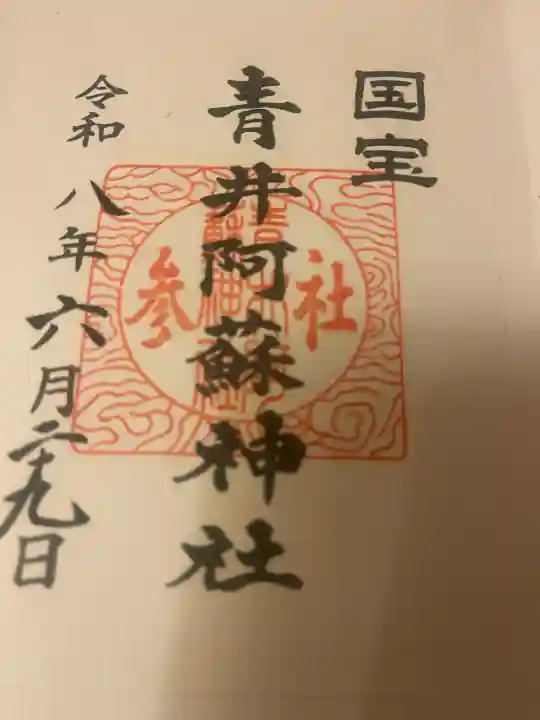 国宝
青井阿蘇神社
社参
令和八年六月二十九日